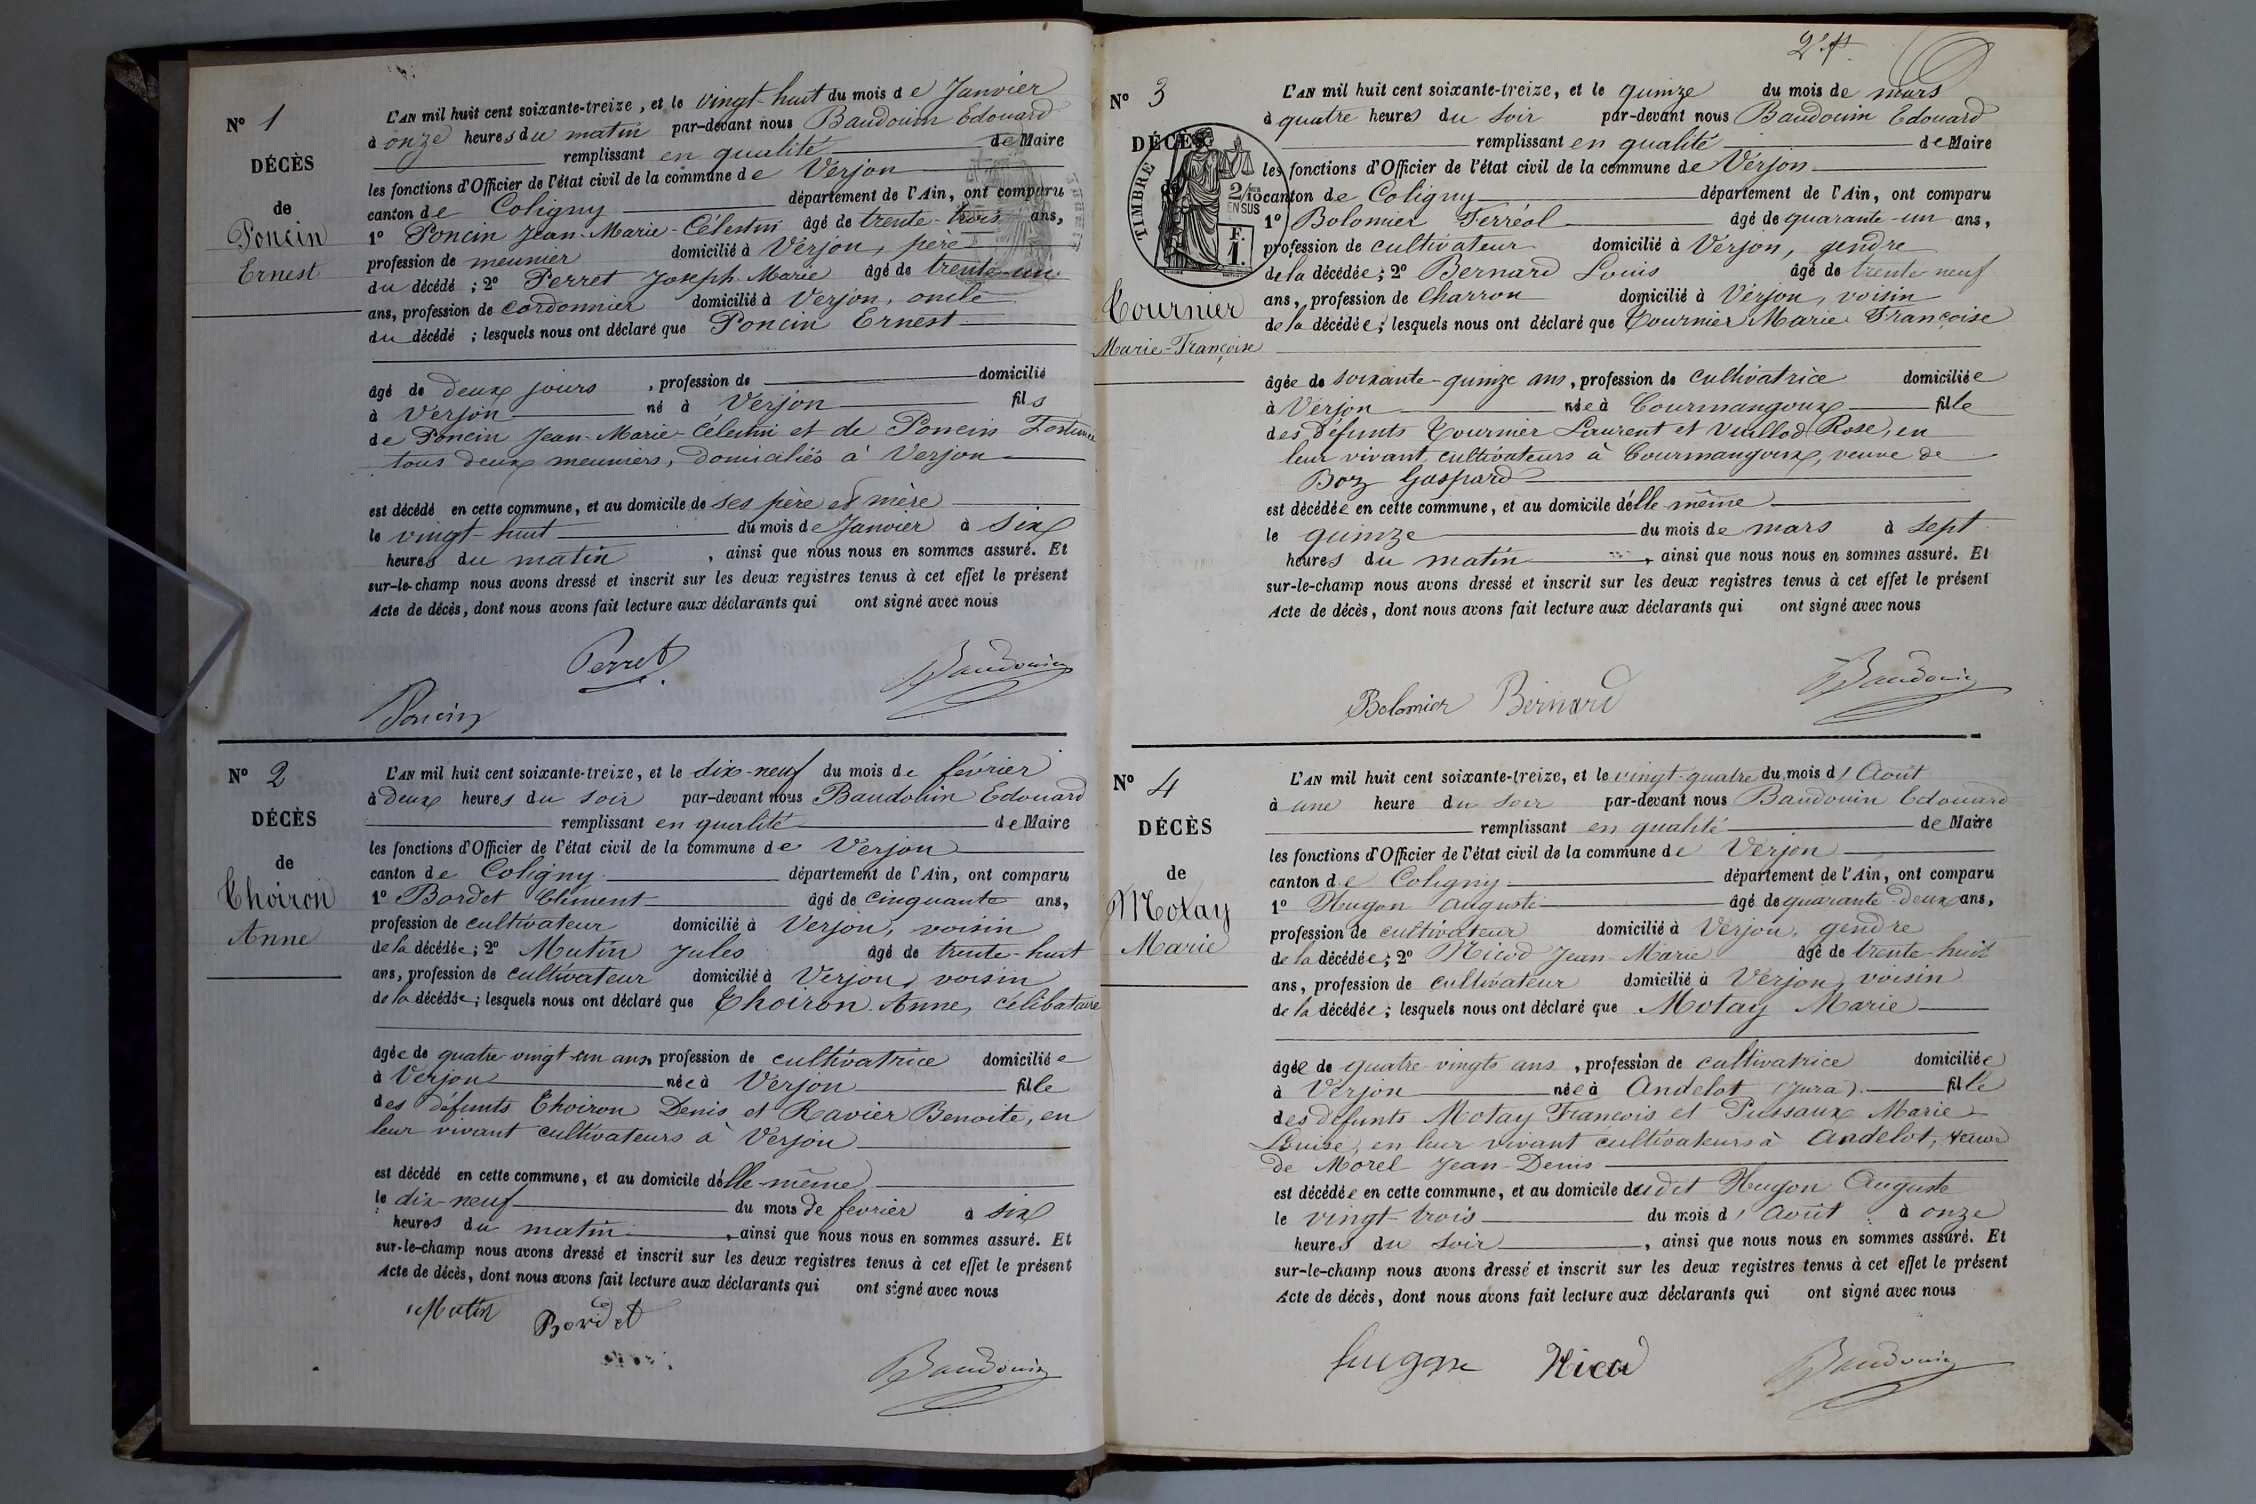 N° 1
DÉCÈS
de
Poncin
Ernest
L'AN mil huit cent soixante-treize, et le vingt-huit du mois de Janvier
à onze heures du matin par-devant nous Baudouin Edouard
remplissant en qualité de Maire
les fonctions d'Officier de l'état civil de la commune de Verjon
canton de Coligny département de l'Ain, ont comparu
1° Poncin Jean-Marie-Célestin âgé de trente-trois ans,
profession de meunier domicilié à Verjon, père
du décédé ; 2° Perret Joseph Marie âgé de trente-un
ans, profession de cordonnier domicilié à Verjon, oncle
du décédé ; lesquels nous ont déclaré que Poncin Ernest
âgé de deux jours , profession de domicilié
à Verjon né à Verjon fils
de Poncin Jean-Marie-Célestin et de Poncin
tous deux meuniers, domiciliés à Verjon
est décédé en cette commune, et au domicile de ses père et mère
le vingt-huit du mois de Janvier à six
heures du matin , ainsi que nous nous en sommes assuré. Et
sur-le-champ nous avons dressé et inscrit sur les deux registres tenus à cet effet le présent
Acte de décès, dont nous avons fait lecture aux déclarants qui ont signé avec nous
Perret
Baudouin
Poncin
N° 2
DÉCÈS
de
Choiron
Anne
L'AN mil huit cent soixante-treize, et le dix-neuf du mois de février
à deux heures du soir par-devant nous Baudouin Edouard
remplissant en qualité de Maire
les fonctions d'Officier de l'état civil de la commune de Verjon
canton de Coligny département de l'Ain, ont comparu
1° Bordet Clément âgé de cinquante ans,
profession de cultivateur domicilié à Verjon, voisin
de la décédée ; 2° Mutin Jules âgé de trente-huit
ans, profession de cultivateur domicilié à Verjon, voisin
de la décédée ; lesquels nous ont déclaré que Choiron Anne, célibataire
âgée de quatre vingt-un ans, profession de cultivatrice domiciliée
à Verjon née à Verjon fille
des défunts Choiron Denis et Ravier Benoite, en
leur vivant cultivateurs à Verjon
est décédé en cette commune, et au domicile d'elle-même
le dix-neuf du mois de fevrier à six
heures du matin , ainsi que nous nous en sommes assuré. Et
sur-le-champ nous avons dressé et inscrit sur les deux registres tenus à cet effet le présent
Acte de décès, dont nous avons fait lecture aux déclarants qui ont signé avec nous
Mutin Bordet
Baudouin
N° 3
DÉCÈS
TIMBRE
2/10
EN SUS
F.
1.
Tournier
Marie-Françoise
L'AN mil huit cent soixante-treize, et le quinze du mois de mars
à quatre heures du soir par-devant nous Baudouin Edouard
remplissant en qualité de Maire
les fonctions d'Officier de l'état civil de la commune de Verjon
canton de Coligny département de l'Ain, ont comparu
1° Bolomier Ferréol âgé de quarante-un ans,
profession de cultivateur domicilié à Verjon, gendre
de la décédée ; 2° Bernard Louis âgé de trente-neuf
ans, profession de Charron domicilié à Verjon, voisin
de la décédée ; lesquels nous ont déclaré que Tournier Marie Françoise
âgée de soixante-quinze ans, profession de cultivatrice domiciliée
à Verjon née à Courmangoux fille
des défunts Tournier Laurent et Vuillod Rose, en
leur vivant cultivateurs à Courmangoux, veuve de
Boz Gaspard
est décédée en cette commune, et au domicile d'elle même
le quinze du mois de mars à sept
heures du matin , ainsi que nous nous en sommes assuré. Et
sur-le-champ nous avons dressé et inscrit sur les deux registres tenus à cet effet le présent
Acte de décès, dont nous avons fait lecture aux déclarants qui ont signé avec nous
Bolomier Bernard Baudouin
N° 4
DÉCÈS
de
Motay
Marie
L'AN mil huit cent soixante-treize, et le vingt-quatre du mois d'Août
à une heure du soir par-devant nous Baudouin Edouard
remplissant en qualité de Maire
les fonctions d'Officier de l'état civil de la commune de Verjon
canton de Coligny département de l'Ain, ont comparu
1° Hugon Auguste âgé de quarante-deux ans,
profession de cultivateur domicilié à Verjon, gendre
de la décédée ; 2° Nicod Jean-Marie âgé de trente-huit
ans, profession de cultivateur domicilié à Verjon, voisin
de la décédée ; lesquels nous ont déclaré que Motay Marie
âgée de quatre-vingts ans , profession de cultivatrice domiciliée
à Verjon née à Andelot (Jura) fille
des défunts Motay François et Pussaux Marie
Louise, en leur vivant cultivateurs à Andelot, veuve
de Morel Jean-Denis
est décédée en cette commune, et au domicile dudit Hugon Auguste
le vingt-trois du mois d'Août à onze
heures du soir , ainsi que nous nous en sommes assuré. Et
sur-le-champ nous avons dressé et inscrit sur les deux registres tenus à cet effet le présent
Acte de décès, dont nous avons fait lecture aux déclarants qui ont signé avec nous
hugon Nicod Baudouin